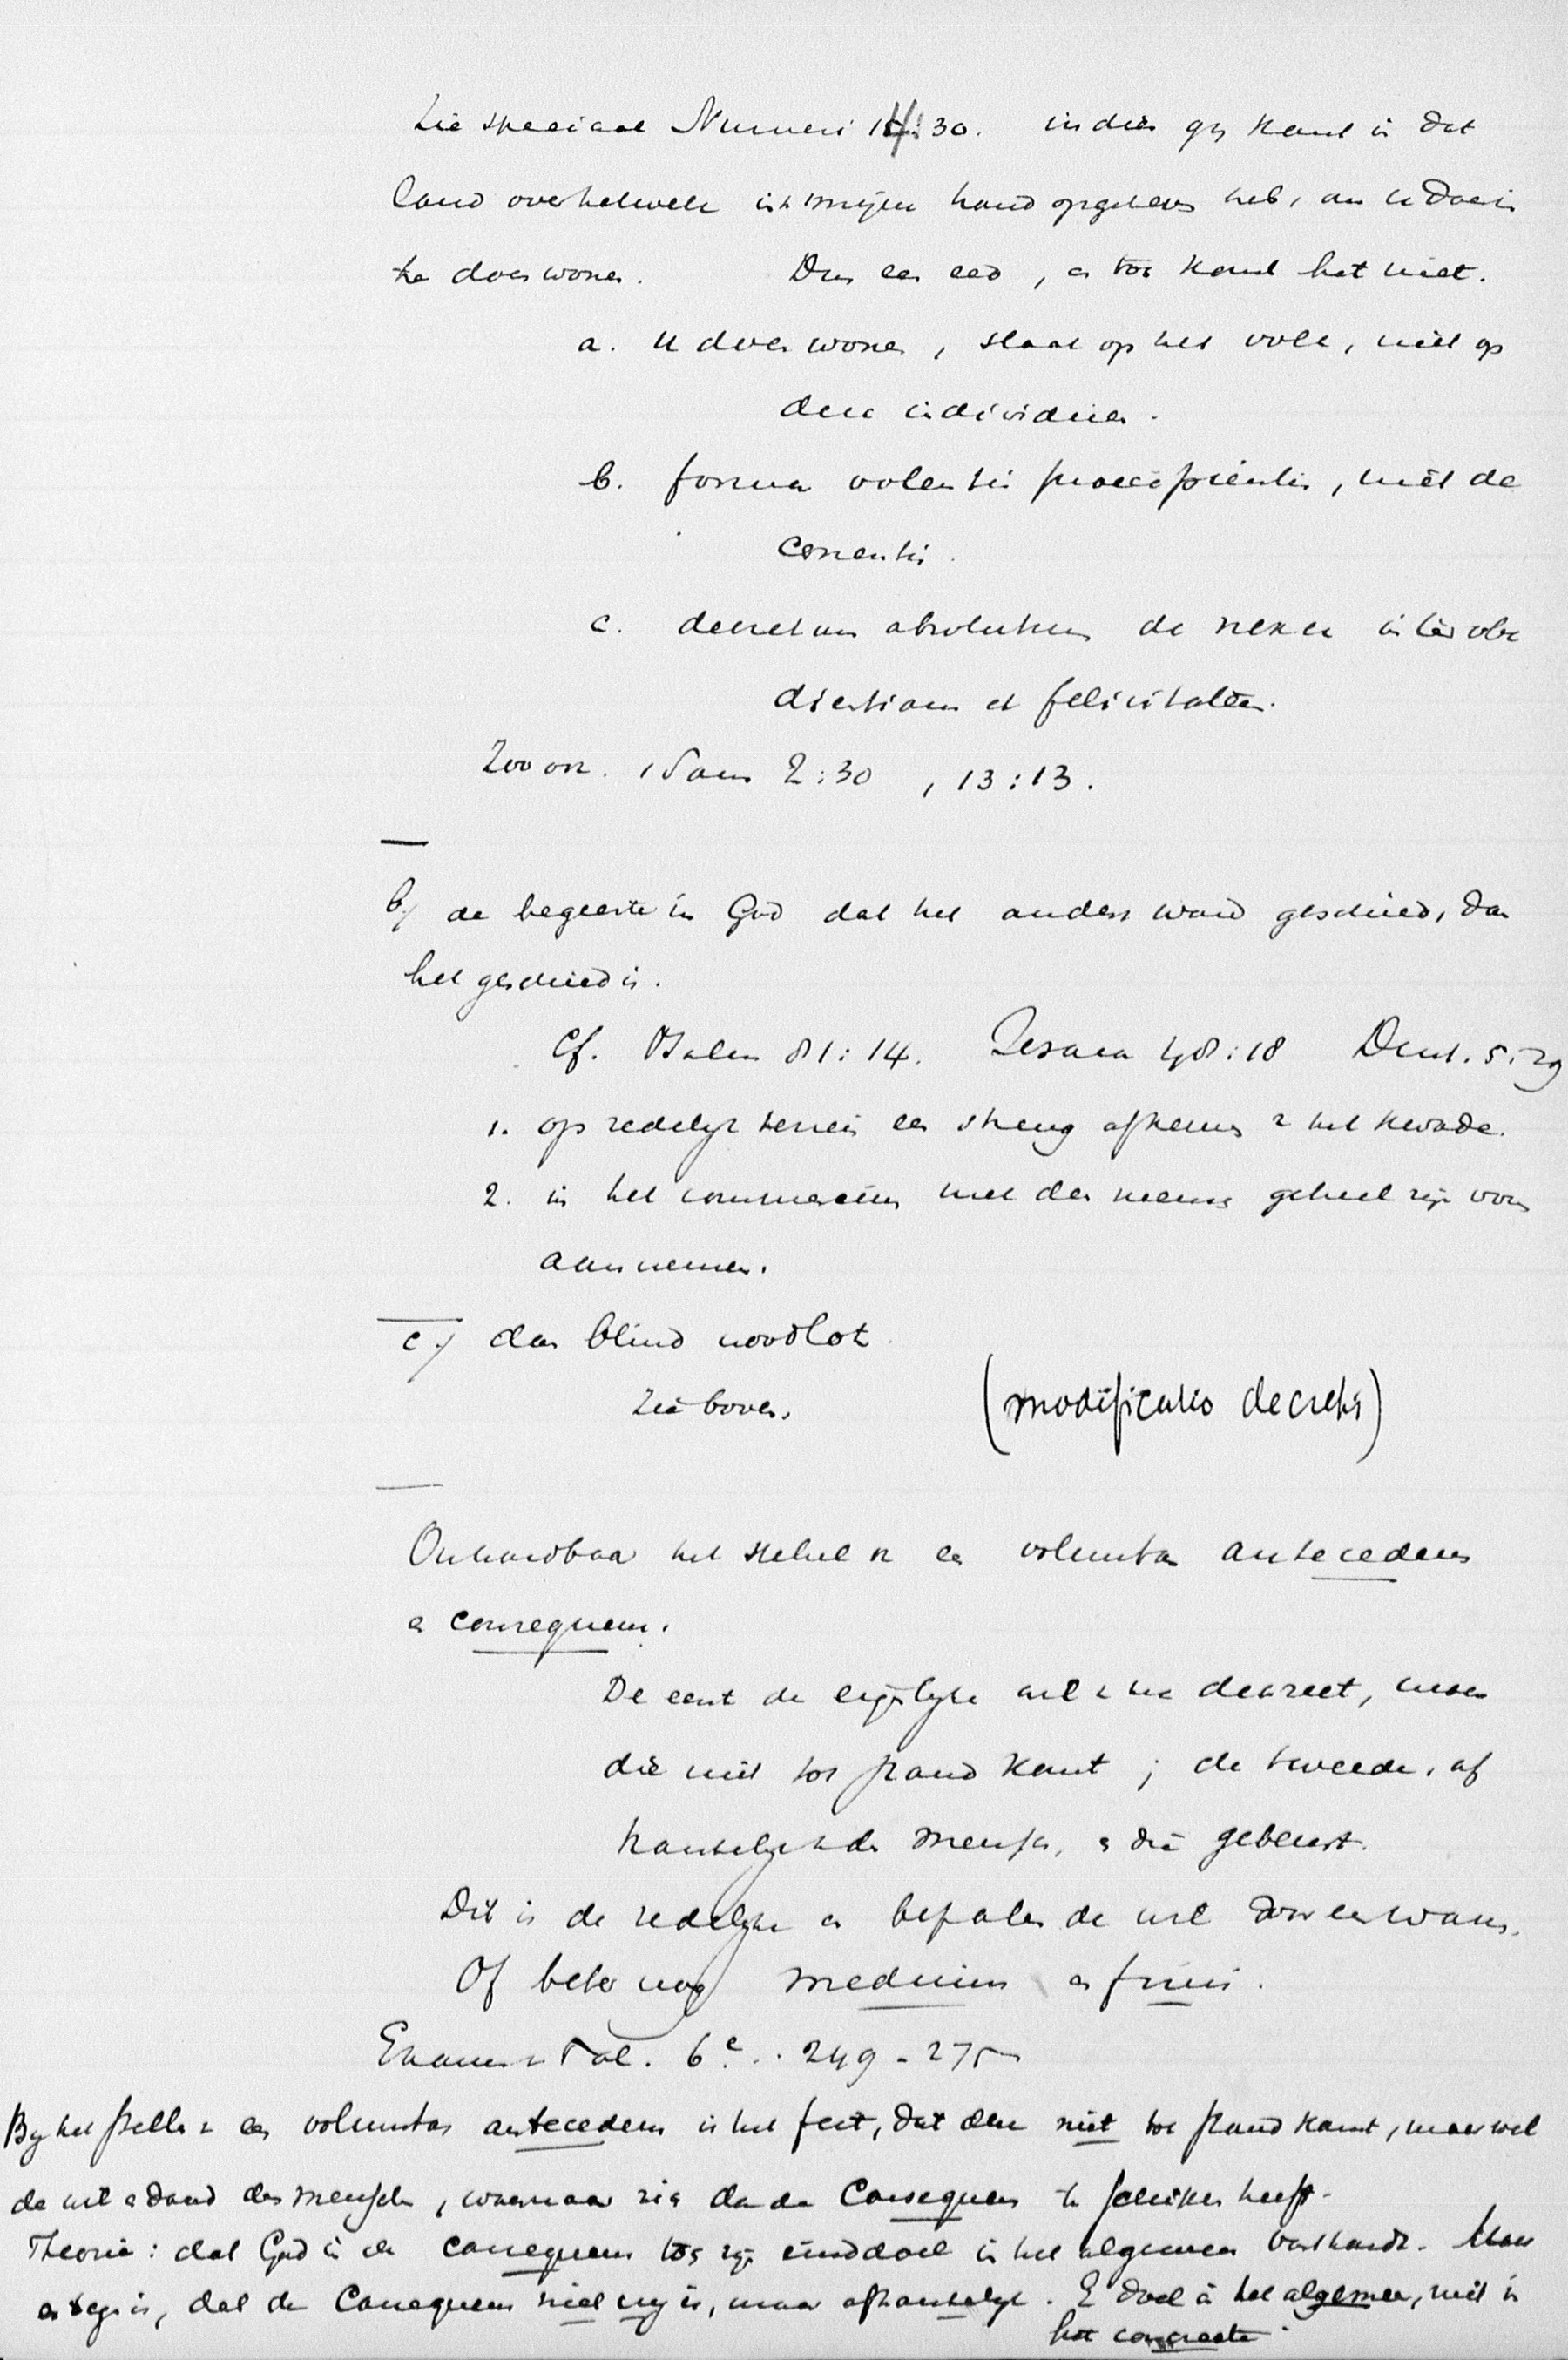 Zie speciaal Numeri 14:30. indien gij komt in dat
land over hetwelk ik mijn hand opgeheven heb, om u daarin
te doen wonen. Dus een eed, en toch komt het niet.
a. u doen wonen, slaat op het volk, niet op
deze individuen.
b. forma volentis praecipientis, niet de
cernentis.
c. decretum absolutum de nexu inter obe
dientiam et felicitatem.
Zoo ook. 1 Sam 2:30, 13:13.
b/ de begeerte in God dat het anders ware geschied, dan
het geschied is.
Cf. Psalm 81:14. Jesaia 48:18 Deut. 5:29
1. op zedelijk terrein een streng afkeuren v het kwade.
2. in het commercium met den mensch geheel zijn vorm
aannemen.
c./ den blind noodlot.
Zie boven. (modificatio decreti)
Onhoudbaar het stelsel v een voluntas antecedens
en consequens.
De eerst de eigenlijke wil v het decreet, maar
die niet tot stand komt; de tweede, af
hankelijk v de mensch, en die gebeurt.
Dit is de zedelijke en bepalende wil dooreenwarren.
Of beter nog medium en finis.
Examen v Tol. 6e.. 249-275
By het stellen v een voluntas antecedens is het feit, dat deze niet tot stand komt, maar wel
de wil en daad des menschen, waarnaar zich dan de Consequens te schikken heeft.
Theorie: dat God in de consequens toch zijn einddoel in het algemeen vasthoudt. Maar
en tegen is, dat de Consequens niet vrij is, maar afhankelijk. En doel in het algemeen, niet in
het concreete.